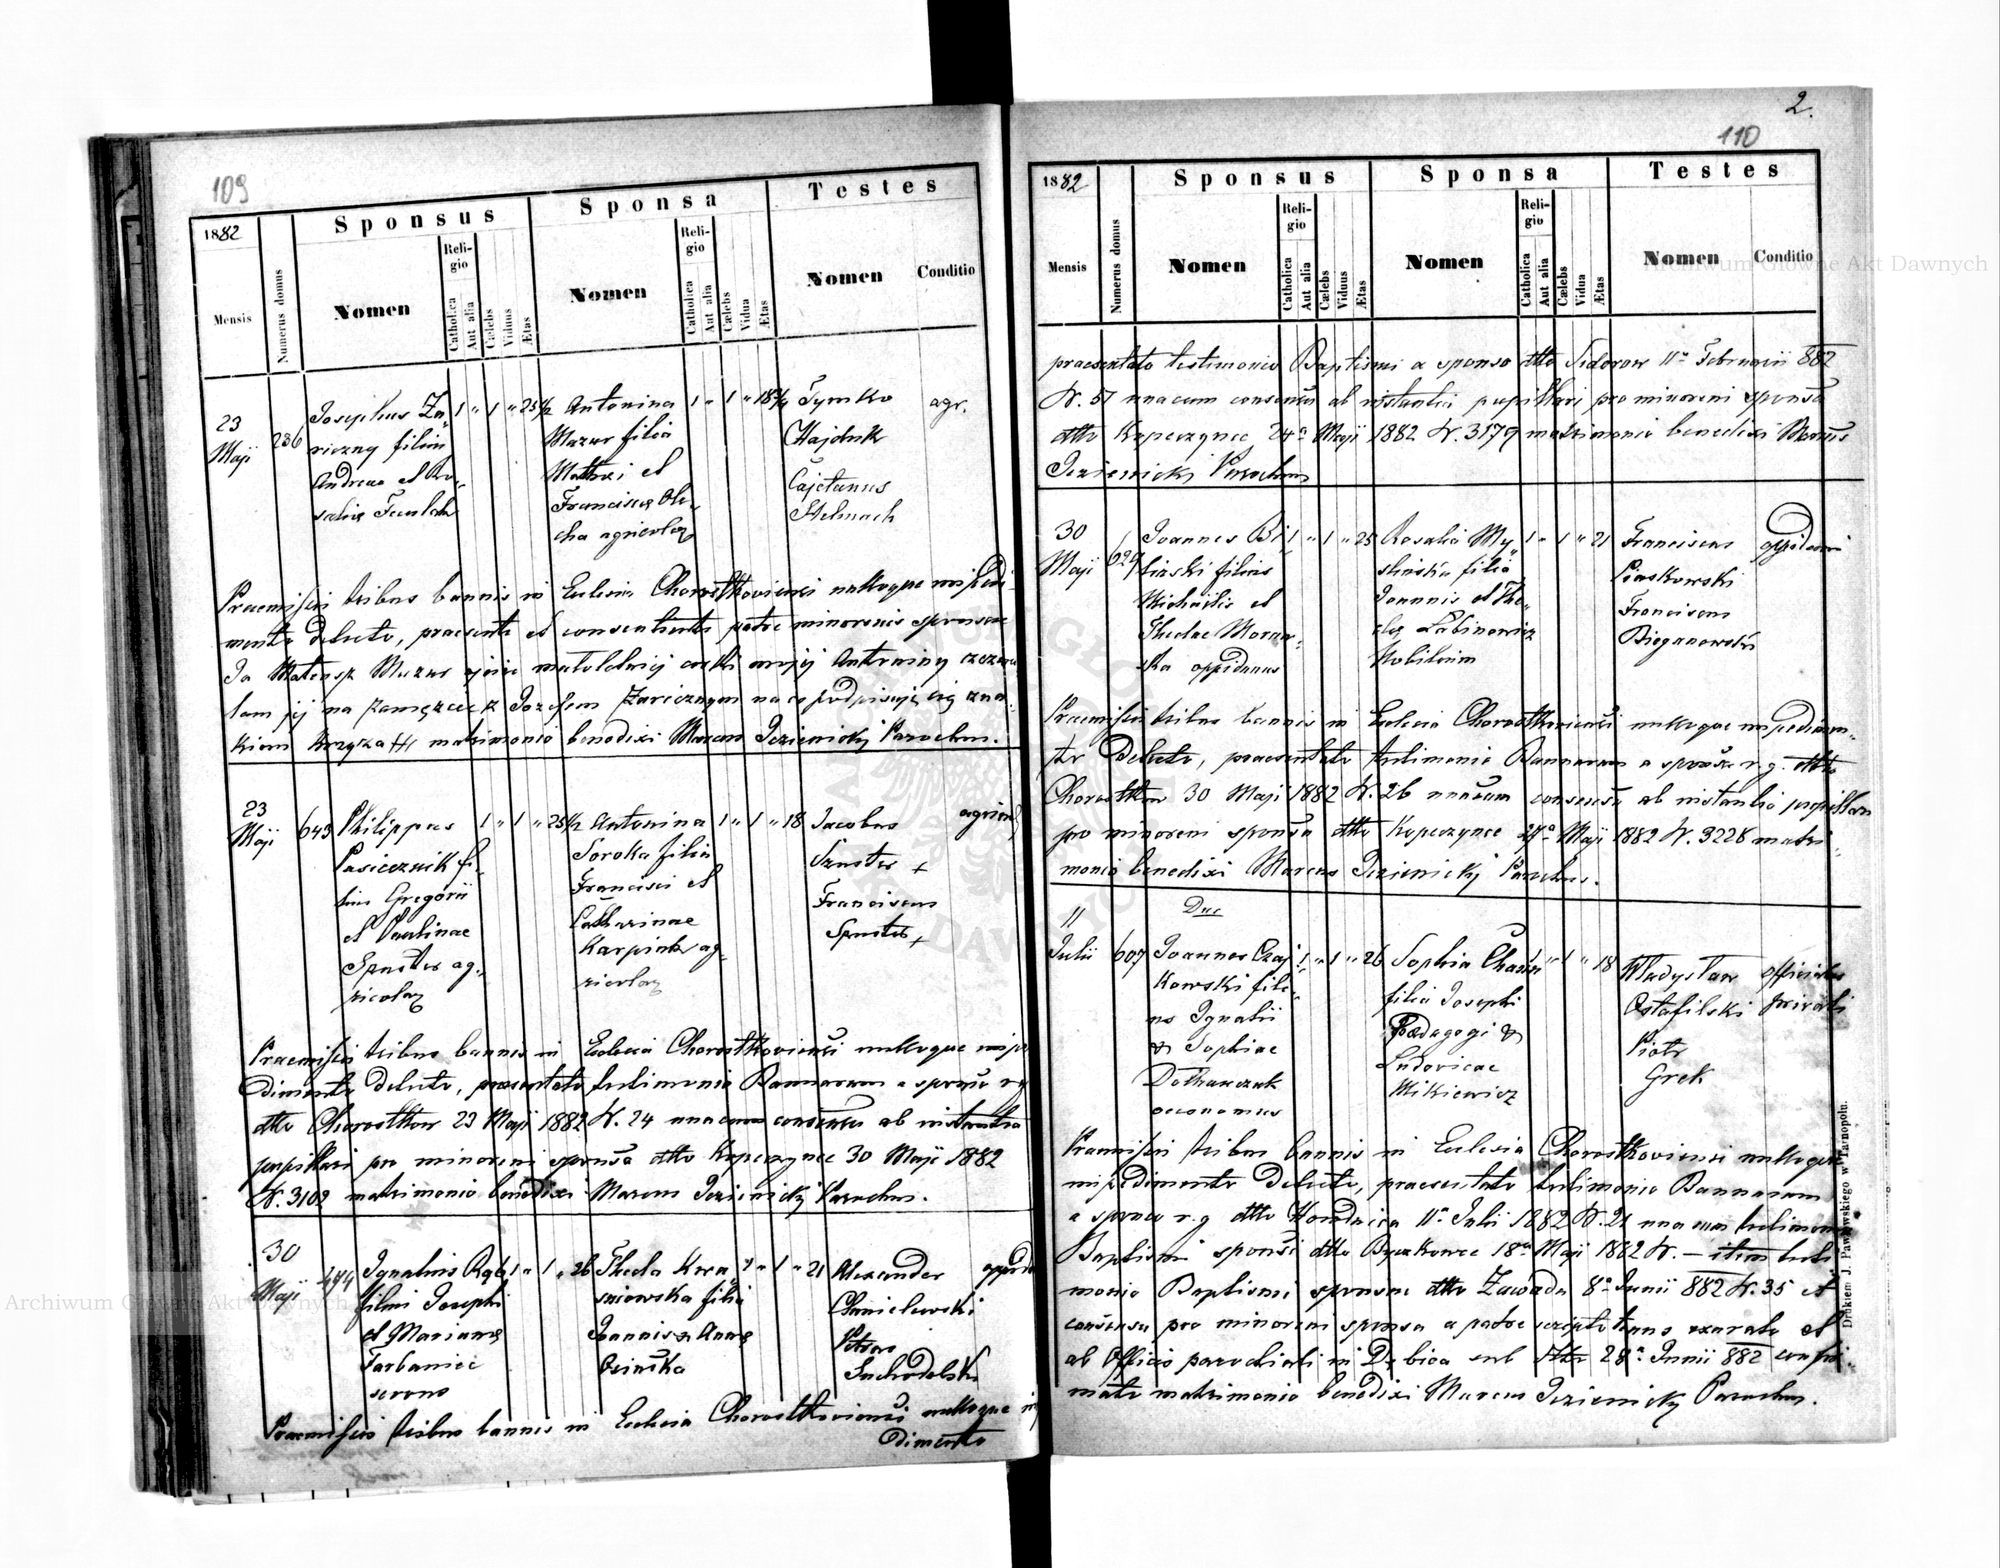 109
1882
Sponsus
Sponsa
Testes
Mensis
Numerus domus
Nomen
Religio
Catholica
Aut alia
Cælebs
Viduus
Ætas
Nomen
Religio
Catholica
Aut alia
Cælebs
Vidua
Ætas
Nomen
Conditio
23 Maji
236
Josephus Za„
riczny filius
Andreae et Ro„
salię
1 „ 1 „ 25½
Antonina
Mazur filia
Mathei et
Franciscę Ole„
cha agricolaę
1 „ 1 „ 18¾
Tymko
Hajduk
Cajetanus
Stelmach
agr.
Praemissis tribus bannis in Ecclesia Chorostkoviensi nulloque impedi„
mento detecto, praesente et consentiente patre minorenis sponsae
Ja Mateusz Mazur ojciec małoletniej córki mojej Antoniny zezwa„
lam jej na zamęzcie z Józefem Zaricznym na co podpisuję się zna„
kiem krzyża ++ matrimonio benedixi Marcus Jezienicky Parochus.
23 Maji
643
Philippus
Pasicznik fi„
lius Gregorii
et Paulinae
Sznster ag„
ricolaę
1 „ 1 „ 25½
Antonina
Soroka filia
Francisci et
Catharinae
Karpink ag„
ricolaę
1 „ 1 „ 18
Jacobus
+
Franciscus
+
Praemissis tribus bannis in Ecclesia Chorostkoviensi nulloque impe
dimento detecto, praesentato testimonio Bannorum a sponso r g
dtto Chorostkow 23 Maji 1882 N. 24 unacum consensu ab instantia
pupillari pro minoreni sponsa dtto Kopeczynce 30 Maji 1882
N. 3102 matrimonio benedixi Marcus Jezienicky Parochus.
30 Maji
474
Ignatius
filius Josephi
et Marianę
Tarbaniec
1 „ 1 „ 26
Thecla Kwa„
sniowska filia
Joannis & Annę
Osinska
1 „ 1 „ 21
Alexander
Chmielewski
Petrus
Suchodolski
Praemissis tribus bannis in Ecclesia Chorostkoviensi nulloque im
dimento
2.
110
1882
Sponsus
Sponsa
Testes
Mensis
Numerus domus
Nomen
Religio
Catholica
Aut alia
Cælebs
Viduus
Ætas
Nomen
Religio
Catholica
Aut alia
Cælebs
Vidua
Ætas
Nomen
Conditio
praesentato testimonio Baptismi a sponso dtto Sidorow 11a Februarii 882
N. 57 unacum consensu ab instantia pupillari pro minoreni sponsa
dtto Kopeczynce 24a Maji 1882 N. 3179 matrimonio benedixi Marcus
Jezienicky Parochus
30 Maji
629
Joannes Bi„
linski filius
Michaelis et
Theclae
oppidanus
1 „ 1 „ 25
Rosalia My„
slinska filia
Joannis et The„
clę Labinowicz
Nobilium
1 „ 1 „ 21
Franciscus
Piaskowski
Franciscus
Bieganowski
oppidani
Praemissis tribus bannis in Ecclesia Chorostkoviensi nulloque impedimen„
to detecto, praesentato testimonio Bannorum a sponso r. g. dtto
Chorostkow 30 Maji 1882 N. 26 unacum consensu ab instantia pupillari
pro minoreni sponsa dtto Kopeczynce 27a Maji 1882 N. 3228 matri„
monio benedixi Marcus Jezienicky Parochus.
11 Julii
607
Duc
Joannes Czaj„
kowski fili„
us Ignatii
& Sophiae
oeconomus
1 „ 1 „ 26
Sophia
filia Josephi
Paedagogi &
Ludovicae
Mikiewicz
1 „ 1 „ 18
Władysław
Ostafilski
Piotr
Grek
officiales
privati
Praemissis tribus bannis in Ecclesia Chorostkoviensi nulloque
impedimento detecto, praesentato testimonio Bannorum
a sponso r. g dtto 11a Julii 1882 N. 21 una cum testimonio
Baptismi sponsi dtto Byczkowce 18a Maji 1882 N. — item testi
monio Baptismi sponsae dtto Zawada 8a Junii 882 N. 35 et
consensu pro minoreni sponsa a patre scripto tenus exarato et
ab Officio parochiali in Dębica sub dtto 28a Junii 882 confir„
mato matrimonio benedixi Marcus Jezienicky Parochus.
Drukiem J. Pawłowskiego w Tarnopolu.
Archiwum Główne Akt Dawnych
Archiwum Główne Akt Dawnych